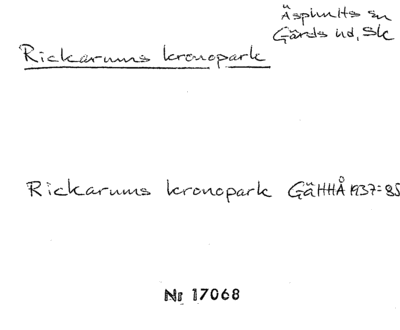 Äsphults sn
Gärds hd, Sk
Rickarums kronopark
Rickarums kronopark GäHHÅ 1937:85
Nr 17068